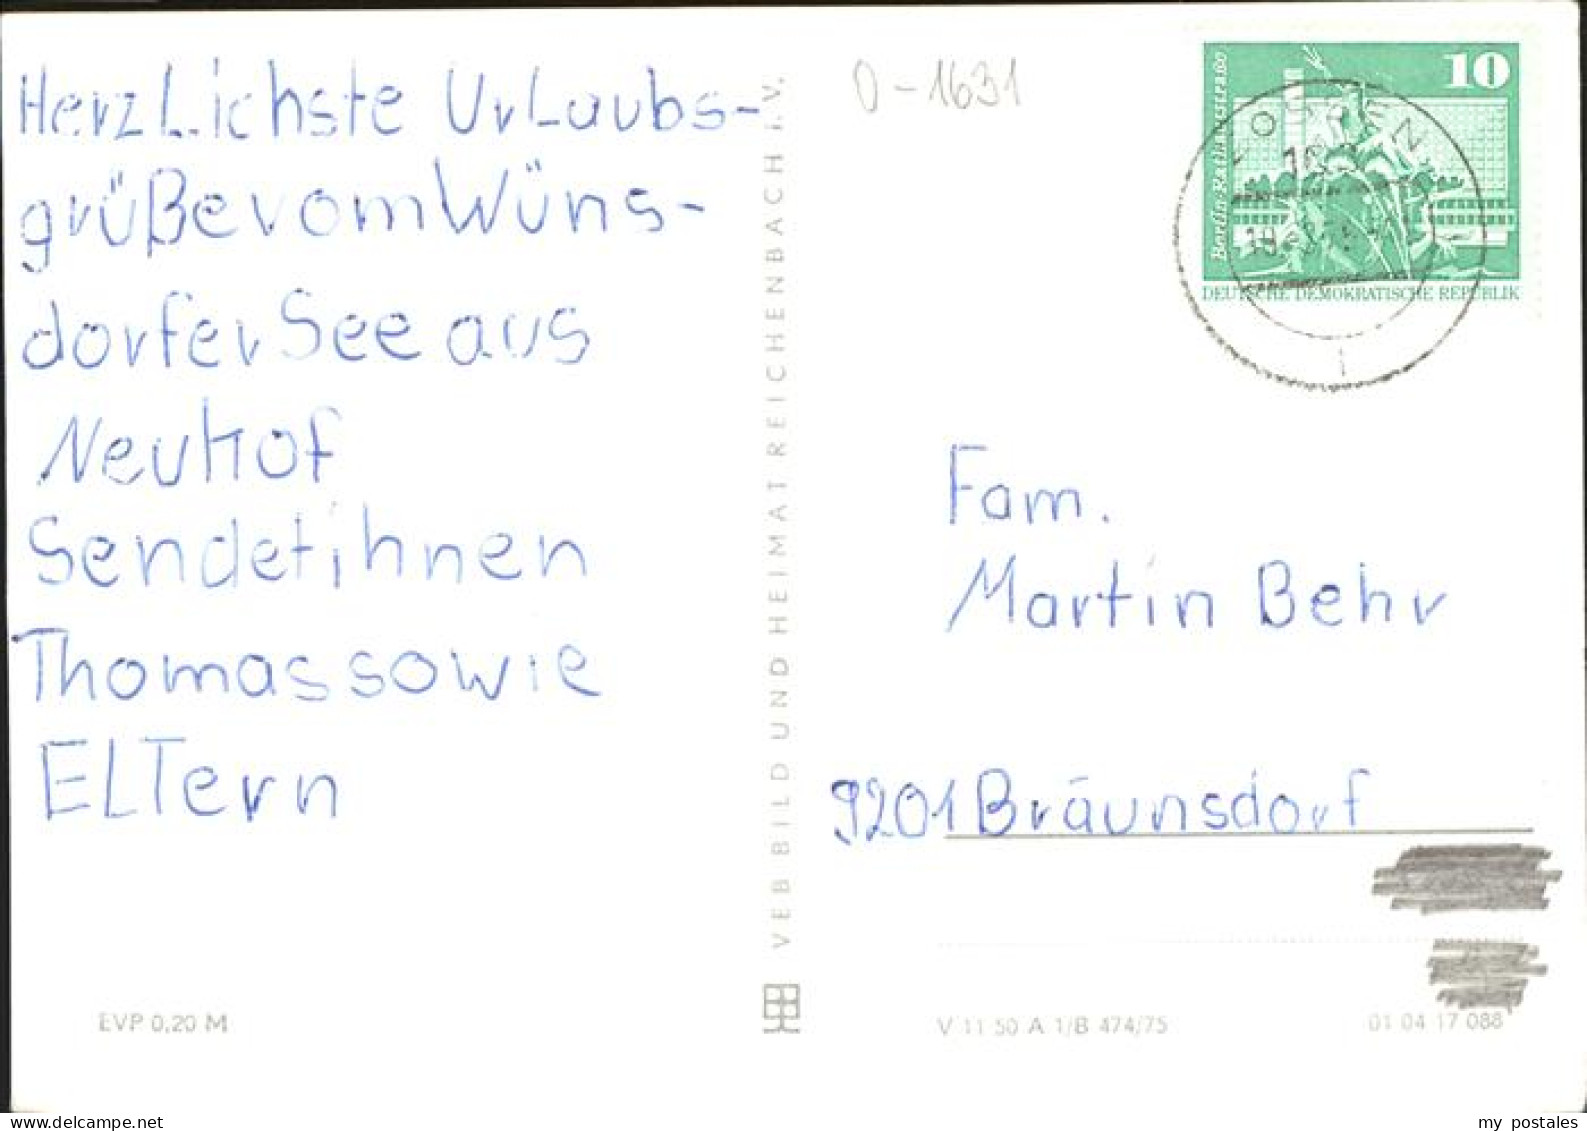 HerzLichste UrLaubs-
grüße vom Wüns-
dorfer See aus
Neuhof
Sendet ihnen
Thomas sowie
ELTern
EVP 0,20 M
VEB BILD UND HEIMAT REICHENBACH I.V.
O-1631
10
Berlin-Rathausstraße
DEUTSCHE DEMOKRATISCHE REPUBLIK
ZOSSEN
1
Fam.
Martin Behr
9201 Bräunsdorf
V 11 50 A 1/B 474/75
01 04 17 088
my postales